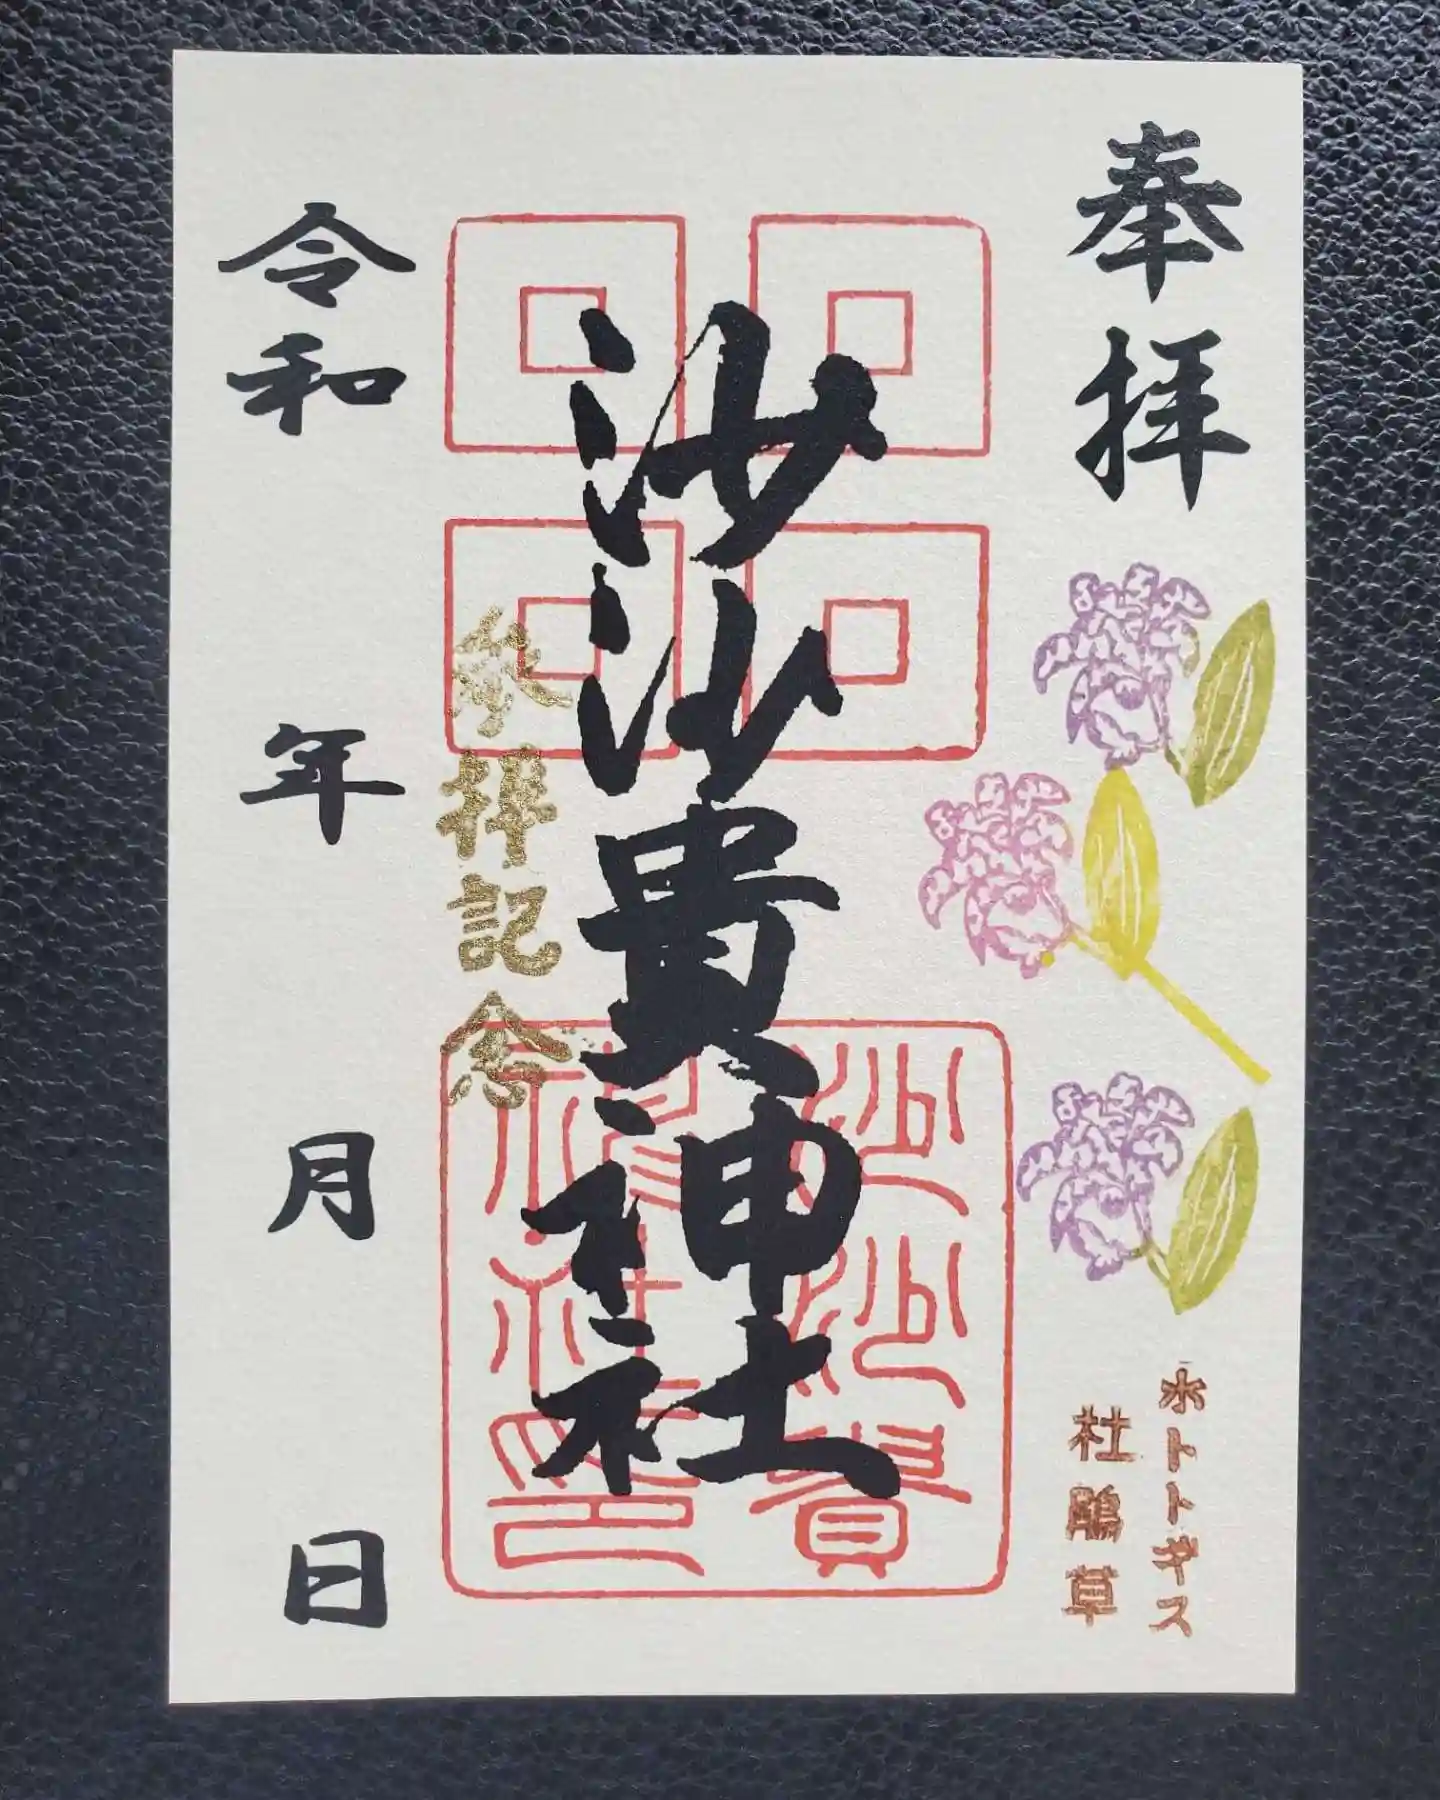 奉拝
ホトトギス
杜鵑草
沙沙貴神社
沙沙貴
神社印
参拝記念
令和 年 月 日